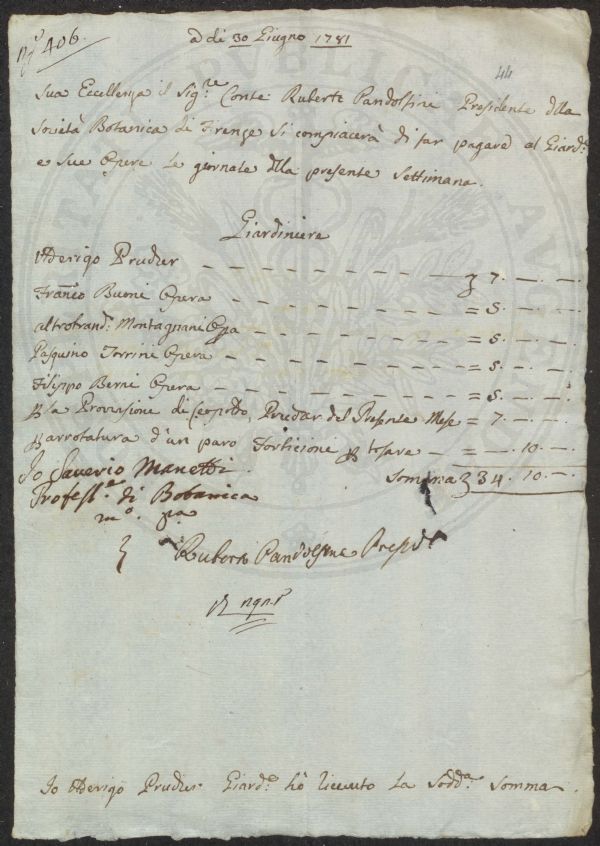 N.º 406.
a di 30 Giugno 1781
44
Sua Eccellenza il Sig.re Conte Ruberto Pandolfini Presidente dlla
Società Botanica di Firenze si compiacerà di far pagare al Giard.e
e sue Opere le giornate dlla presente Settimana.
Giardiniere
Aderigo Prucker — 7. — —
Franco Bueni Opera — = 5. — —
altro Frand: Montagnani Opa — = 5. — —
Pasquino Torrini Opera — = 5. — —
Filippo Berni Opera — = 5. — —
P la Provisione di Leopoldo Prucker del Presente Mese = 7. — —
P arrotatura d'un paro Forbicione P tosare — = — 10. —
Somma 34. 10. —
Io Saverio Manetti
Profess.e di Botanica
m.o p.a
Ruberto Pandolfini Presid.e
Io Aderigo Prucker Giard.e hò ricevuto la Sodd.a Somma.